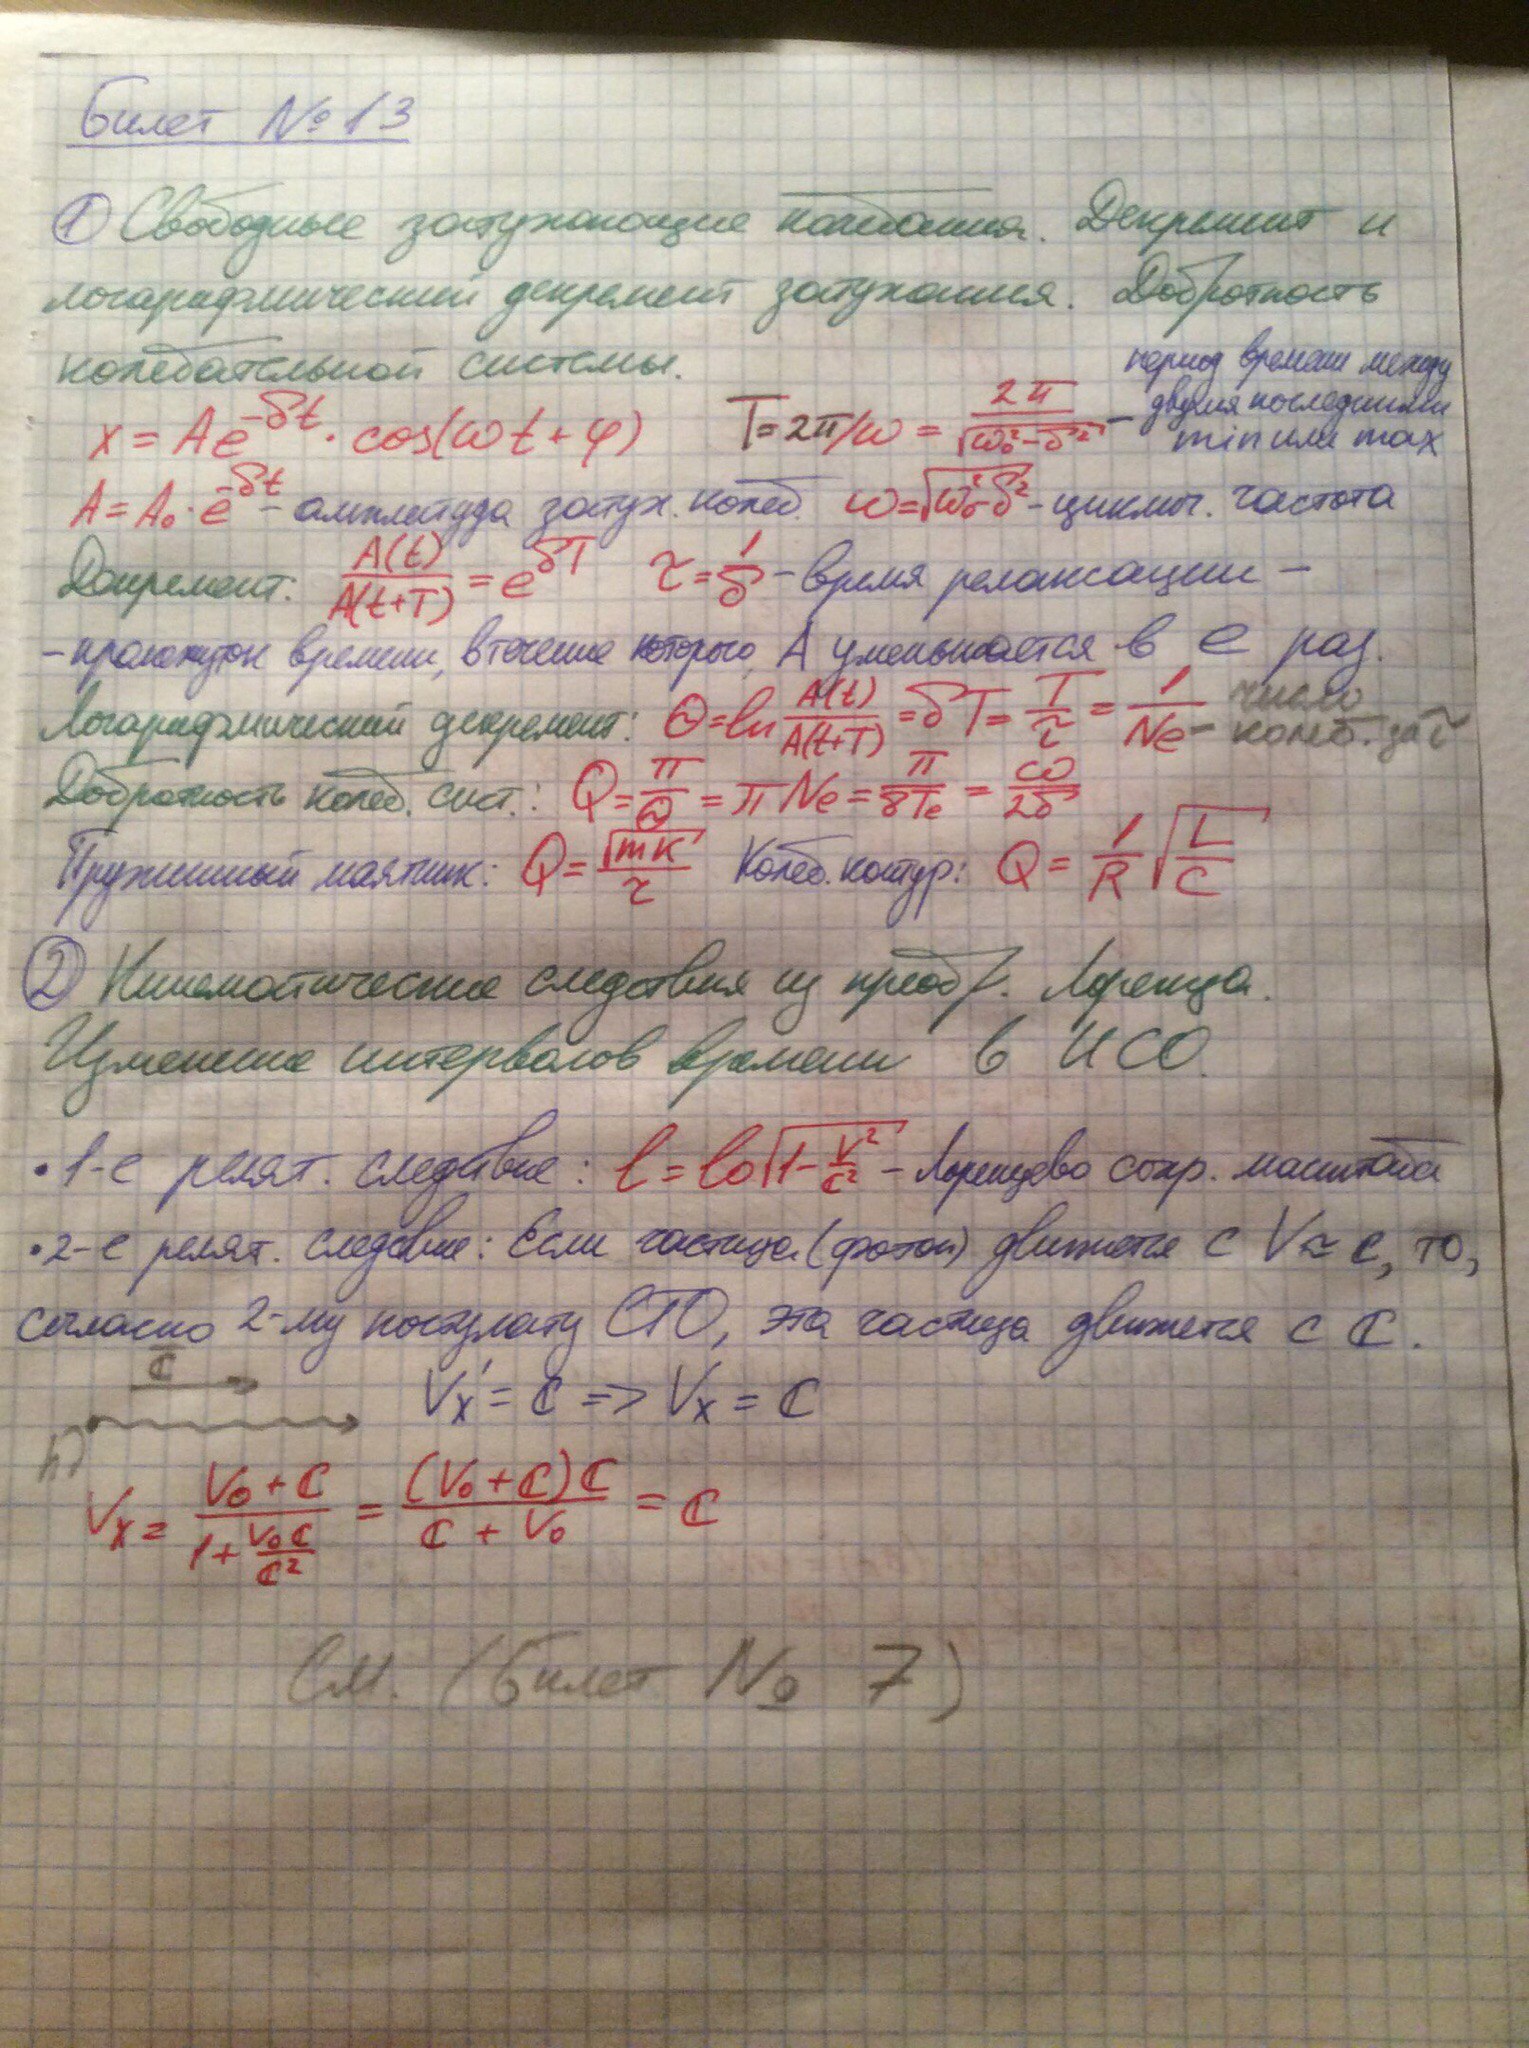 Билет № 13
① Свободные затухающие колебания. Декремент и
логарифмический декремент затухания. Добротность
колебательной системы.
x = Ae^{-δt} · cos(ωt + φ)   T = 2π/ω = 2π/√(ω₀² - δ²) – период времени между двумя последними min или max
A = A₀ · e^{-δt} – амплитуда затух. колеб.   ω = √(ω₀² - δ²) – циклич. частота
Декремент: A(t)/A(t+T) = e^{δT}   τ = 1/δ – время релаксации –
– промежуток времени, в течение которого A уменьшается в e раз.
Логарифмический декремент: Θ = ln A(t)/A(t+T) = δT = T/τ = 1/Ne – число колеб. за τ
Добротность колеб. сист.: Q = π/Θ = πNe = π/δTe = ω/2δ
Пружинный маятник: Q = √(mk)/r   Колеб. контур: Q = 1/R √(L/C)
② Кинематические следствия из преобр. Лоренца.
Изменение интервалов времени в ИСО.
• 1-е релят. следствие: l = l₀√(1 - V²/c²) – Лоренцево сокр. масштаба
• 2-е релят. следствие: Если частица (фотон) движется с V ≈ c, то,
согласно 2-му постулату СТО, эта частица движется с c.
c
Vx' = c => Vx = c
Vx = (V₀ + c)/(1 + V₀c/c²) = (V₀ + c)c/(c + V₀) = c
См. (Билет № 7)